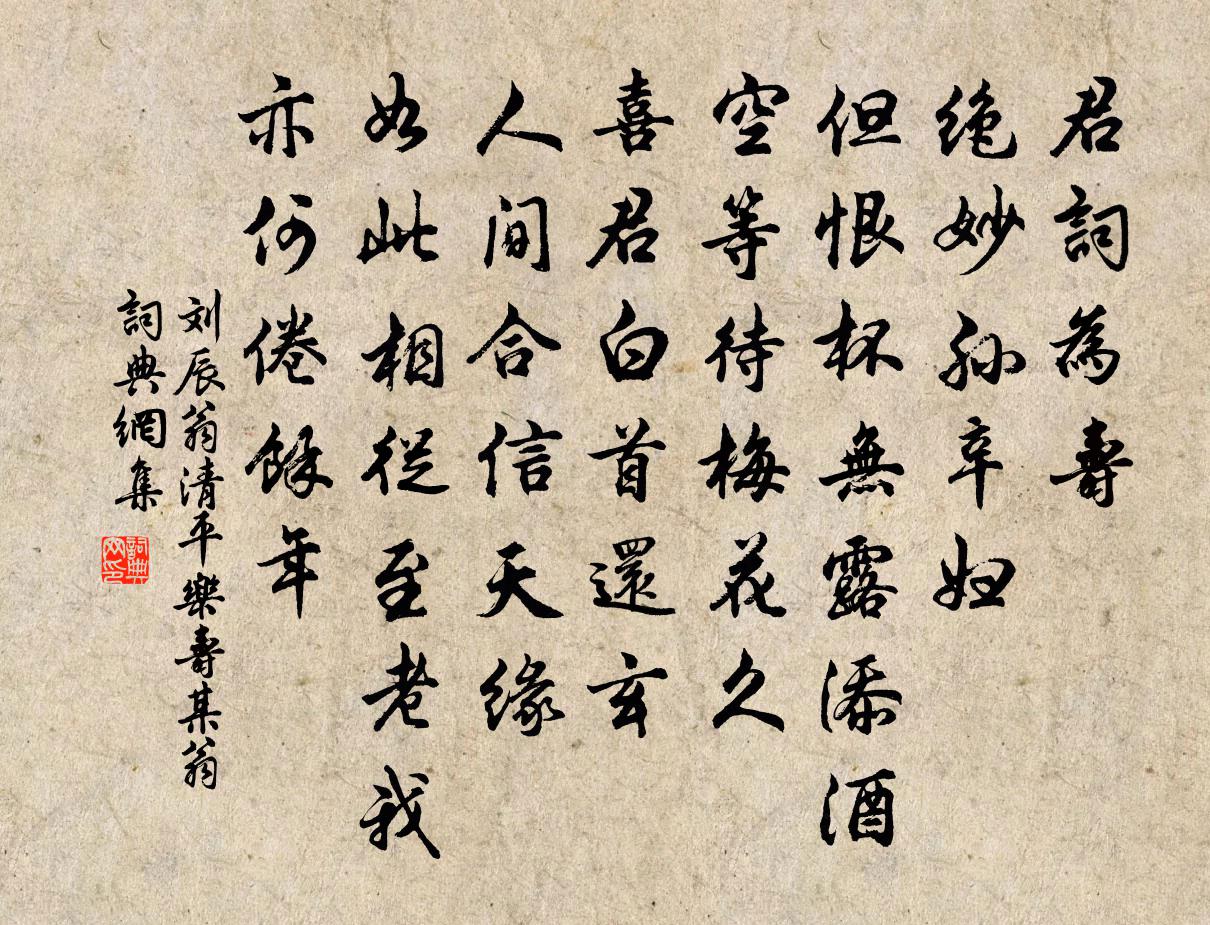 君詞為壽
绝妙孙辛妇
但恨杯無露添酒
空等待梅花久
喜君白首還玄
人間合信天缘
如此相從至老我
亦何倦餘年
刘辰翁清平樂壽某翁
詞典網集
詞典网印